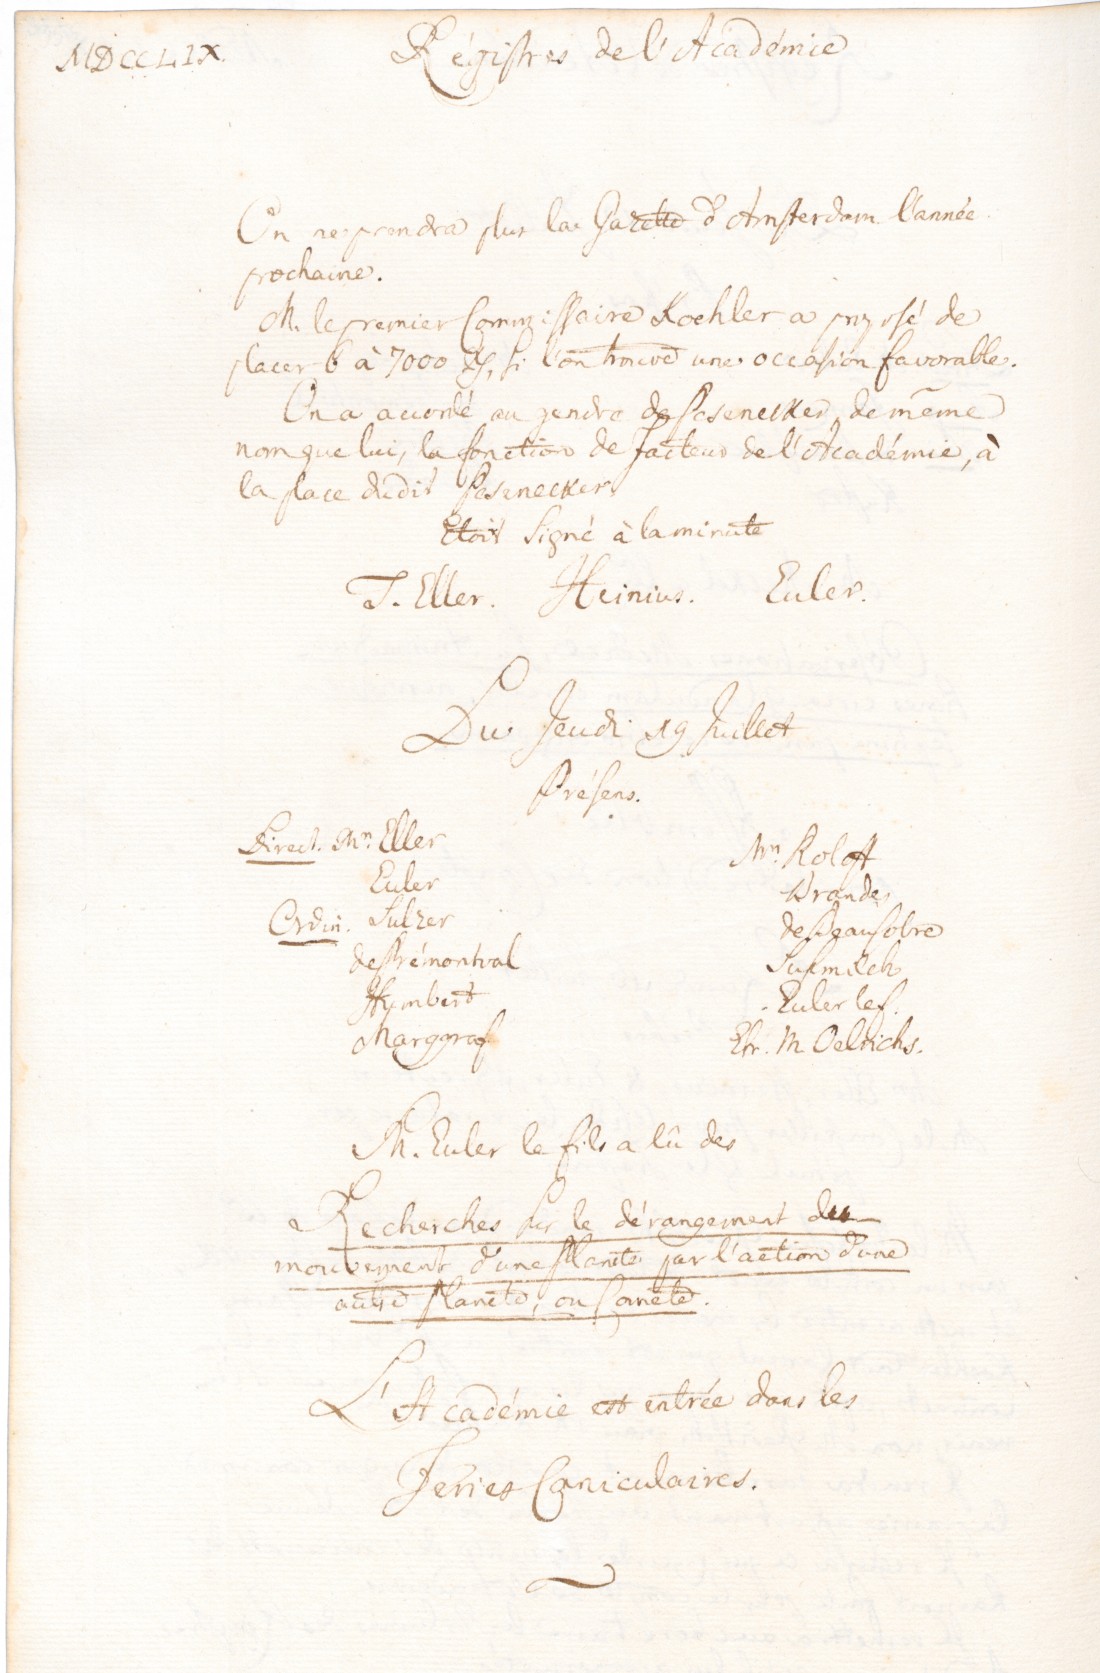 MDCCLIX.
Régistres de l'Académie
On ne prendra plus la Gazette d'Amsterdam l'année
prochaine.
M. le premier Commissaire Koehler a proposé de
placer 6 à 7000 si l'on trouve une occasion favorable.
On a accordé au gendre de Posenecker, de même
nom que lui, la fonction de facteur de l'Académie, à
la place dudit Posenecker
Etoit signé à la minute
J. Eller. Heinius. Euler.
Du Jeudi 19 Juillet
Présens.
Direct. Mrs. Eller
Euler
Ordin. Sulzer
de Prémontval
Humbert
Marggraf
Mrs. Roloff
Brandes
de Beausobre
Susmilch
Euler le f.
Etr. M. Oelrichs.
M. Euler le fils a lû des
Recherches sur le dérangement du
mouvement d'une Planete par l'action d'une
autre Planete, ou Comete.
L'Académie est entrée dans les
Feries Caniculaires.